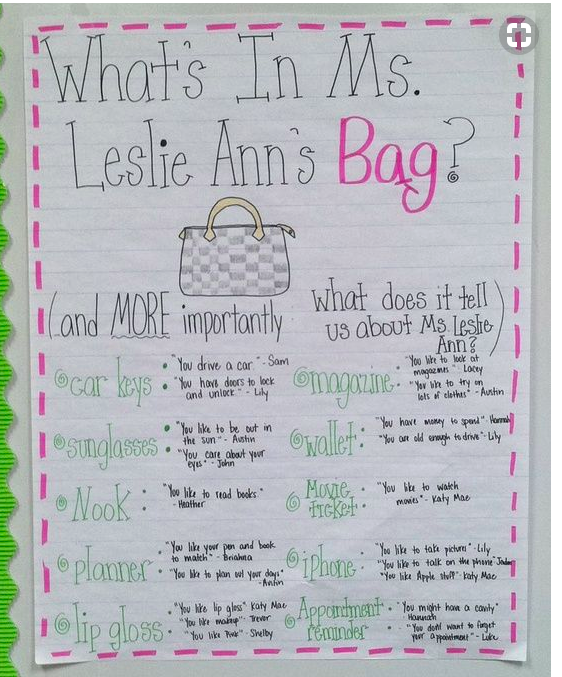 What's In Ms.
Leslie Ann's Bag?
(and MORE importantly
what does it tell
us about Ms. Leslie
Ann?)
car keys:
"You drive a car." - Sam
"You have doors to lock
and unlock" - Lily
magazine:
"You like to look at
magazines" - Lacey
"You like to try on
lots of clothes" - Austin
sunglasses:
"You like to be out in
the sun" - Austin
"You care about your
eyes" - John
wallet:
"You have money to spend" - Hannah
"You are old enough to drive" - Lily
Nook:
"You like to read books."
- Heather
Movie
ticket:
"You like to watch
movies" - Katy Mae
planner:
"You like your pen and book
to match" - Brianna
"You like to plan out your days"
- Austin
iphone:
"You like to take pictures" - Lily
"You like to talk on the phone"
"You like Apple stuff" - Katy Mae
lip gloss:
"You like lip gloss" Katy Mae
"You like makeup" - Trevor
"You like Pink" - Shelby
Appointment
reminder:
"You might have a cavity"
Hannah
"You don't want to forget
your appointment" - Luke